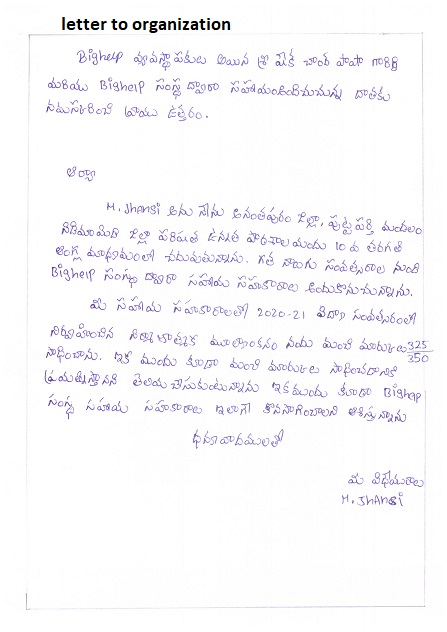 letter to organization
Bighelp వ్యవస్థాపకులు అయిన శ్రీ షేక్ చాంద్ పాషా గారికి
మరియు Bighelp సంస్థ ద్వారా సహాయంఅందించుచున్న దాతకు
నమస్కరించి వ్రాయు ఉత్తరం.
ఆర్యా
M. Jhansi అను నేను అనంతపురం జిల్లా, పుట్టపర్తి మండలం
నిడిమామిడి జిల్లా పరిషత్ ఉన్నత పాఠశాల యందు 10 వ తరగతి
ఆంగ్ల మాధ్యమంలో చదువుతున్నాను. గత నాలుగు సంవత్సరాల నుండి
Bighelp సంస్థ ద్వారా సహాయ సహకారాలు అందుకొనుచున్నాను.
మీ సహాయ సహకారాలతో 2020-21 విద్యా సంవత్సరంలో
నిర్వహించిన మూల్యాంకనం నందు మంచి మార్కులు 325/350
సాధించాను. ఇక ముందు కూడా మంచి మార్కులు సాధించడానికి
ప్రయత్నిస్తానని తెలియచేసుకుంటున్నాను ఇకముందు కూడా Bighelp
సంస్థ సహాయ సహకారాలు ఇలాగే కొనసాగించాలని ఆశిస్తున్నాను
ధన్యవాదములతో
మీ విధేయురాలు
M. JHANSI